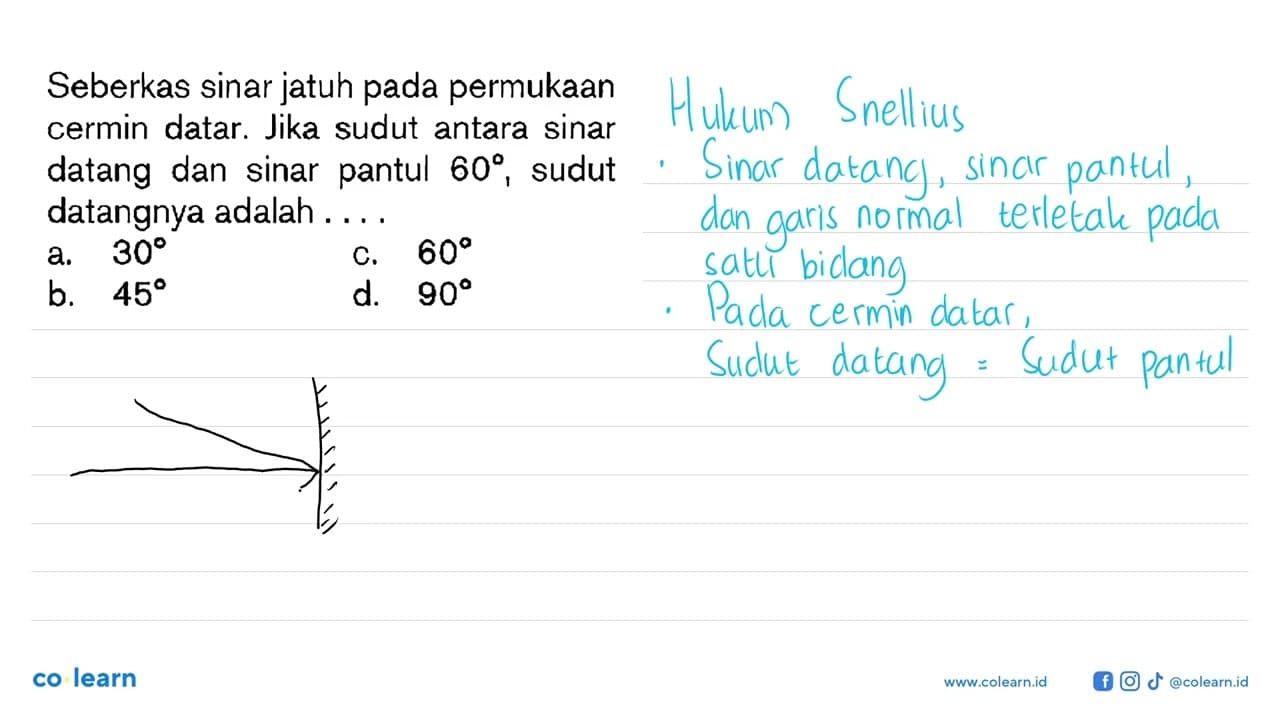 Seberkas sinar jatuh pada permukaan
cermin datar. Jika sudut antara sinar
datang dan sinar pantul 60°, sudut
datangnya adalah . . . .
a. 30° c. 60°
b. 45° d. 90°
Hukum Snellius
· Sinar datang, sinar pantul,
dan garis normal terletak pada
satu bidang
· Pada cermin datar,
Sudut datang = Sudut pantul
co learn
www.colearn.id @colearn.id